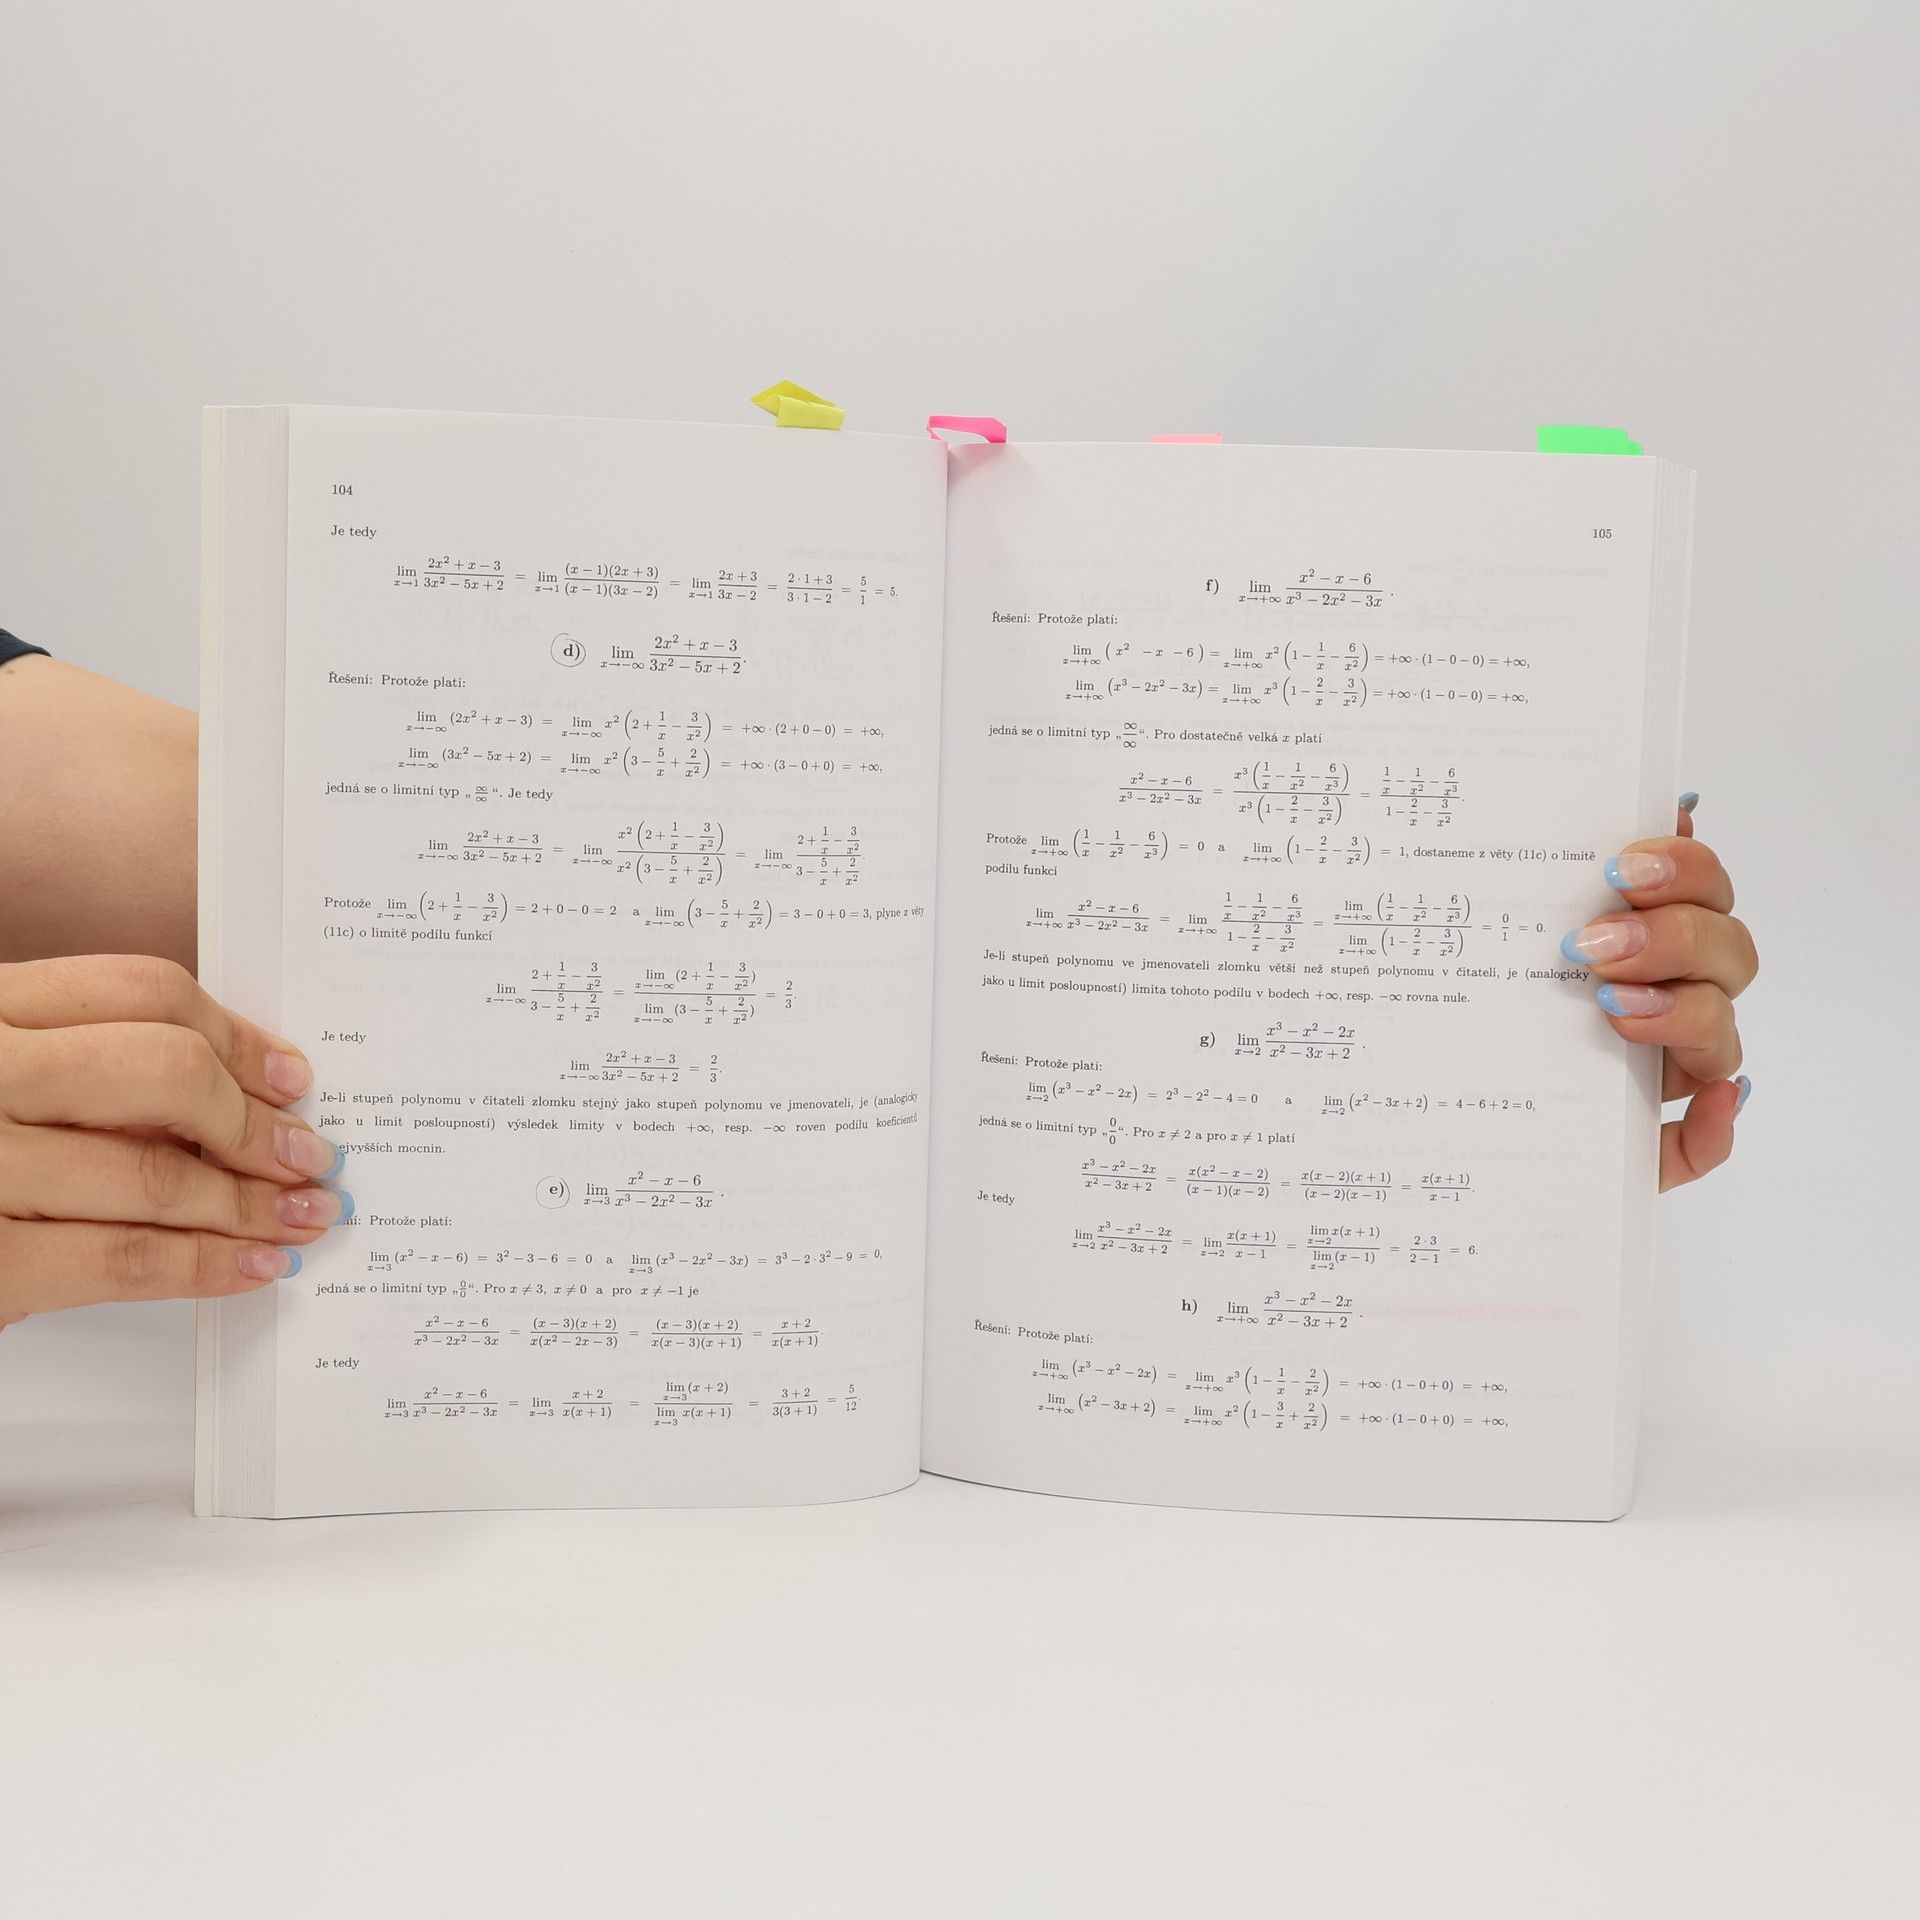 104
Je tedy
lim x→1 (2x² + x − 3)/(3x² − 5x + 2) = lim x→1 ((x − 1)(2x + 3))/((x − 1)(3x − 2)) = lim x→1 (2x + 3)/(3x − 2) = (2 · 1 + 3)/(3 · 1 − 2) = 5/1 = 5.
d) lim x→−∞ (2x² + x − 3)/(3x² − 5x + 2).
Řešení: Protože platí:
lim x→−∞ (2x² + x − 3) = lim x→−∞ x² (2 + 1/x − 3/x²) = +∞ · (2 + 0 − 0) = +∞,
lim x→−∞ (3x² − 5x + 2) = lim x→−∞ x² (3 − 5/x + 2/x²) = +∞ · (3 − 0 + 0) = +∞,
jedná se o limitní typ „∞/∞“. Je tedy
lim x→−∞ (2x² + x − 3)/(3x² − 5x + 2) = lim x→−∞ (x² (2 + 1/x − 3/x²))/(x² (3 − 5/x + 2/x²)) = lim x→−∞ (2 + 1/x − 3/x²)/(3 − 5/x + 2/x²).
Protože lim x→−∞ (2 + 1/x − 3/x²) = 2 + 0 − 0 = 2 a lim x→−∞ (3 − 5/x + 2/x²) = 3 − 0 + 0 = 3, plyne z věty
(11c) o limitě podílu funkcí
lim x→−∞ (2 + 1/x − 3/x²)/(3 − 5/x + 2/x²) = (lim x→−∞ (2 + 1/x − 3/x²))/(lim x→−∞ (3 − 5/x + 2/x²)) = 2/3.
Je tedy
lim x→−∞ (2x² + x − 3)/(3x² − 5x + 2) = 2/3.
Je-li stupeň polynomu v čitateli zlomku stejný jako stupeň polynomu ve jmenovateli, je (analogicky
jako u limit posloupností) výsledek limity v bodech +∞, resp. −∞ roven podílu koeficientů
ejvyšších mocnin.
e) lim x→3 (x² − x − 6)/(x³ − 2x² − 3x) .
ní: Protože platí:
lim x→3 (x² − x − 6) = 3² − 3 − 6 = 0 a lim x→3 (x³ − 2x² − 3x) = 3³ − 2 · 3² − 9 = 0,
jedná se o limitní typ „0/0“. Pro x ≠ 3, x ≠ 0 a pro x ≠ −1 je
(x² − x − 6)/(x³ − 2x² − 3x) = ((x − 3)(x + 2))/(x(x² − 2x − 3)) = ((x − 3)(x + 2))/(x(x − 3)(x + 1)) = (x + 2)/(x(x + 1)).
Je tedy
lim x→3 (x² − x − 6)/(x³ − 2x² − 3x) = lim x→3 (x + 2)/(x(x + 1)) = (lim x→3 (x + 2))/(lim x→3 x(x + 1)) = (3 + 2)/(3(3 + 1)) = 5/12.
105
f) lim x→+∞ (x² − x − 6)/(x³ − 2x² − 3x) .
Řešení: Protože platí:
lim x→+∞ (x² − x − 6) = lim x→+∞ x² (1 − 1/x − 6/x²) = +∞ · (1 − 0 − 0) = +∞,
lim x→+∞ (x³ − 2x² − 3x) = lim x→+∞ x³ (1 − 2/x − 3/x²) = +∞ · (1 − 0 − 0) = +∞,
jedná se o limitní typ „∞/∞“. Pro dostatečně velká x platí
(x² − x − 6)/(x³ − 2x² − 3x) = (x³ (1/x − 1/x² − 6/x³))/(x³ (1 − 2/x − 3/x²)) = (1/x − 1/x² − 6/x³)/(1 − 2/x − 3/x²).
Protože lim x→+∞ (1/x − 1/x² − 6/x³) = 0 a lim x→+∞ (1 − 2/x − 3/x²) = 1, dostaneme z věty (11c) o limitě
podílu funkcí
lim x→+∞ (x² − x − 6)/(x³ − 2x² − 3x) = lim x→+∞ (1/x − 1/x² − 6/x³)/(1 − 2/x − 3/x²) = (lim x→+∞ (1/x − 1/x² − 6/x³))/(lim x→+∞ (1 − 2/x − 3/x²)) = 0/1 = 0.
Je-li stupeň polynomu ve jmenovateli zlomku větší než stupeň polynomu v čitateli, je (analogicky
jako u limit posloupností) limita tohoto podílu v bodech +∞, resp. −∞ rovna nule.
g) lim x→2 (x³ − x² − 2x)/(x² − 3x + 2) .
Řešení: Protože platí:
lim x→2 (x³ − x² − 2x) = 2³ − 2² − 4 = 0 a lim x→2 (x² − 3x + 2) = 4 − 6 + 2 = 0,
jedná se o limitní typ „0/0“. Pro x ≠ 2 a pro x ≠ 1 platí
(x³ − x² − 2x)/(x² − 3x + 2) = (x(x² − x − 2))/((x − 1)(x − 2)) = (x(x − 2)(x + 1))/((x − 2)(x − 1)) = (x(x + 1))/(x − 1).
Je tedy
lim x→2 (x³ − x² − 2x)/(x² − 3x + 2) = lim x→2 (x(x + 1))/(x − 1) = (lim x→2 x(x + 1))/(lim x→2 (x − 1)) = (2 · 3)/(2 − 1) = 6.
h) lim x→+∞ (x³ − x² − 2x)/(x² − 3x + 2) .
Řešení: Protože platí:
lim x→+∞ (x³ − x² − 2x) = lim x→+∞ x³ (1 − 1/x − 2/x²) = +∞ · (1 − 0 + 0) = +∞,
lim x→+∞ (x² − 3x + 2) = lim x→+∞ x² (1 − 3/x + 2/x²) = +∞ · (1 − 0 + 0) = +∞,